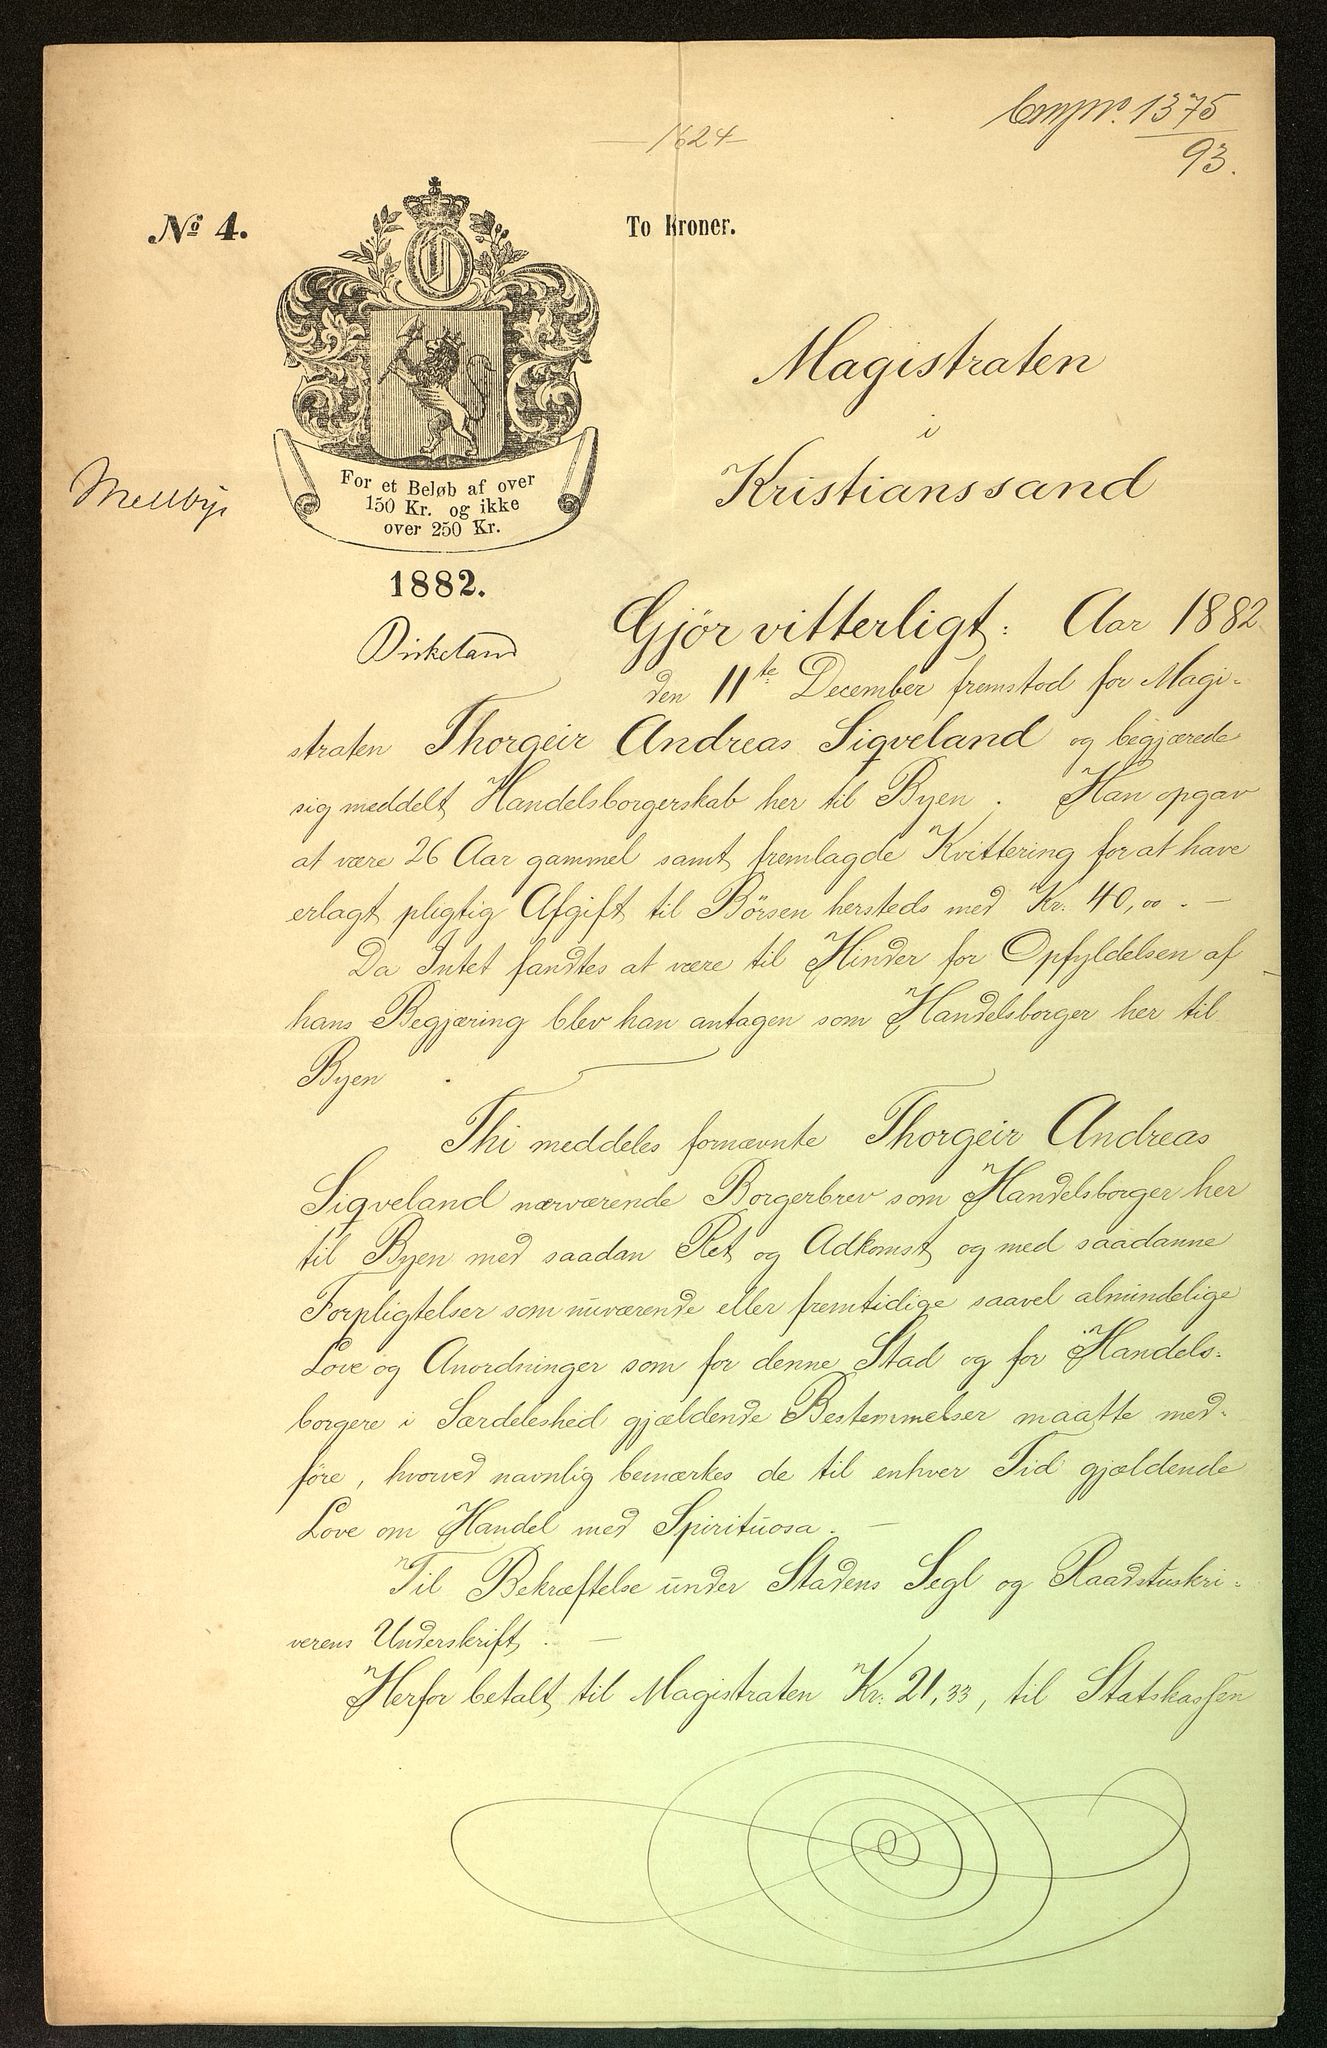 1624
1375
93.
No 4.
To Kroner.
Magistraten
i
Kristianssand
For et Beløb af over
150 Kr. og ikke
over 250 Kr.
Mellbye
1882.
Birkeland
Gjör vitterligt: Aar 1882
den 11te December fremstod for Magi-
straten Thorgeir Andreas Siqveland og begjærede
sig meddelt Handelsborgerskab her til Byen. Han opgav
at være 26 Aar gammel samt fremlagde Kvittering for at have
erlagt pligtig Afgift til Börsen hersteds med Kr. 40,00. —
Da Intet fandtes at være til Hinder for Opfyldelsen af
hans Begjæring blev han antagen som Handelsborger her til
Byen.
Thi meddeles fornævnte Thorgeir Andreas
Siqveland nærværende Borgerbrev som Handelsborger her
til Byen med saadan Ret og Adkomst og med saadanne
Forpligtelser som nuværende eller fremtidige saavel almindelige
Love og Anordninger som for denne Stad og for Handels-
borgere i Særdeleshed gjældende Bestemmelser maatte med-
føre, hvorved navnlig bemærkes de til enhver Tid gjældende
Love om Handel med Spirituosa. —
Til Bekræftelse under Stadens Segl og Raadstuskri-
verens Underskrift. —
Herfor betalt til Magistraten Kr. 21,33, til Statskassen